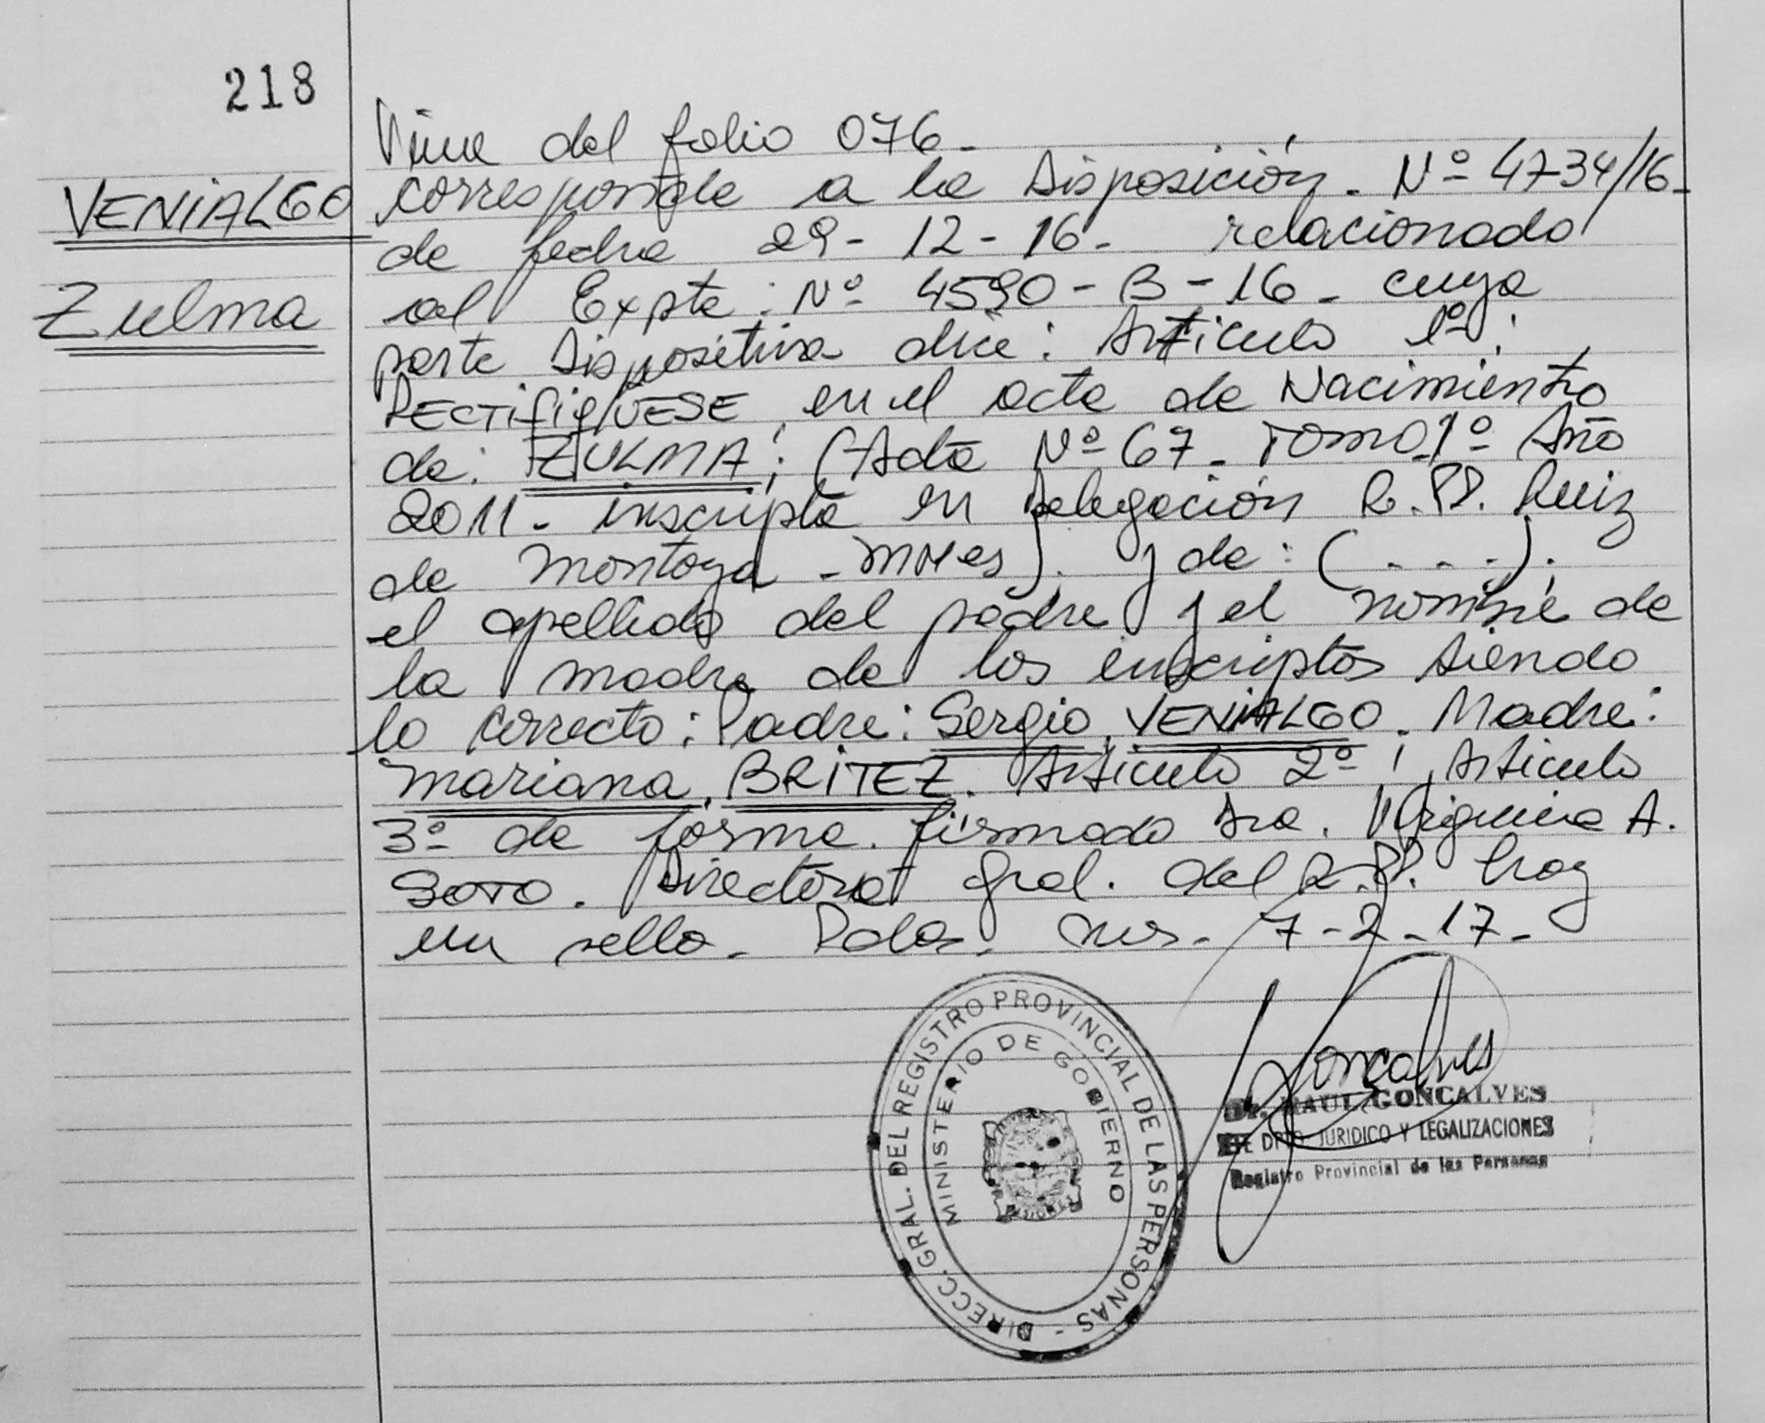 218
VENIALGO
Zulma
Viene del folio 076-
corresponde a la Disposición. Nº 4734/16-
de fecha 29-12-16- relacionado
al Expte: Nº 4590-B-16- cuya
parte Dispositiva dice: Artículo 1º:
RECTIFIQUESE, en el acta de Nacimiento
de: ZULMA; (Acta Nº 67- Tomo 1º Año
2011- inscripta en Delegación R.PP. Ruiz
de Montoya - Mnes). y de: (- - -).
el apellido del padre y el nombre de
la madre de los inscriptos siendo
lo correcto: Padre: Sergio, VENIALGO. Madre:
Mariana, BRITEZ. Artículo 2º; Artículo
3º de forma. Firmado Dra. A.
SOTO. Directora Gral. del R.PP. hay
un sello- Pdas. Mnes- 7-2-17-
DIRECC. GRAL. DEL REGISTRO PROVINCIAL DE LAS PERSONAS -
MINISTERIO DE GOBIERNO
MISIONES
Goncalves
Dr. RAUL GONCALVES
JEFE DPTO. JURIDICO Y LEGALIZACIONES
Registro Provincial de las Personas